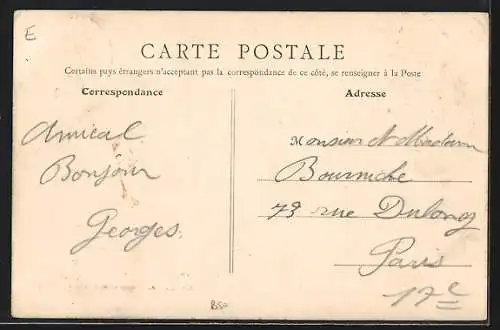 E
CARTE POSTALE
Certains pays étrangers n'acceptant pas la correspondance de ce côté, se renseigner à la Poste
Correspondance
Adresse
Amical
Bonjour
Georges.
Monsieur et Madame
Bourniche
73 rue Dulong
Paris
17e
B50